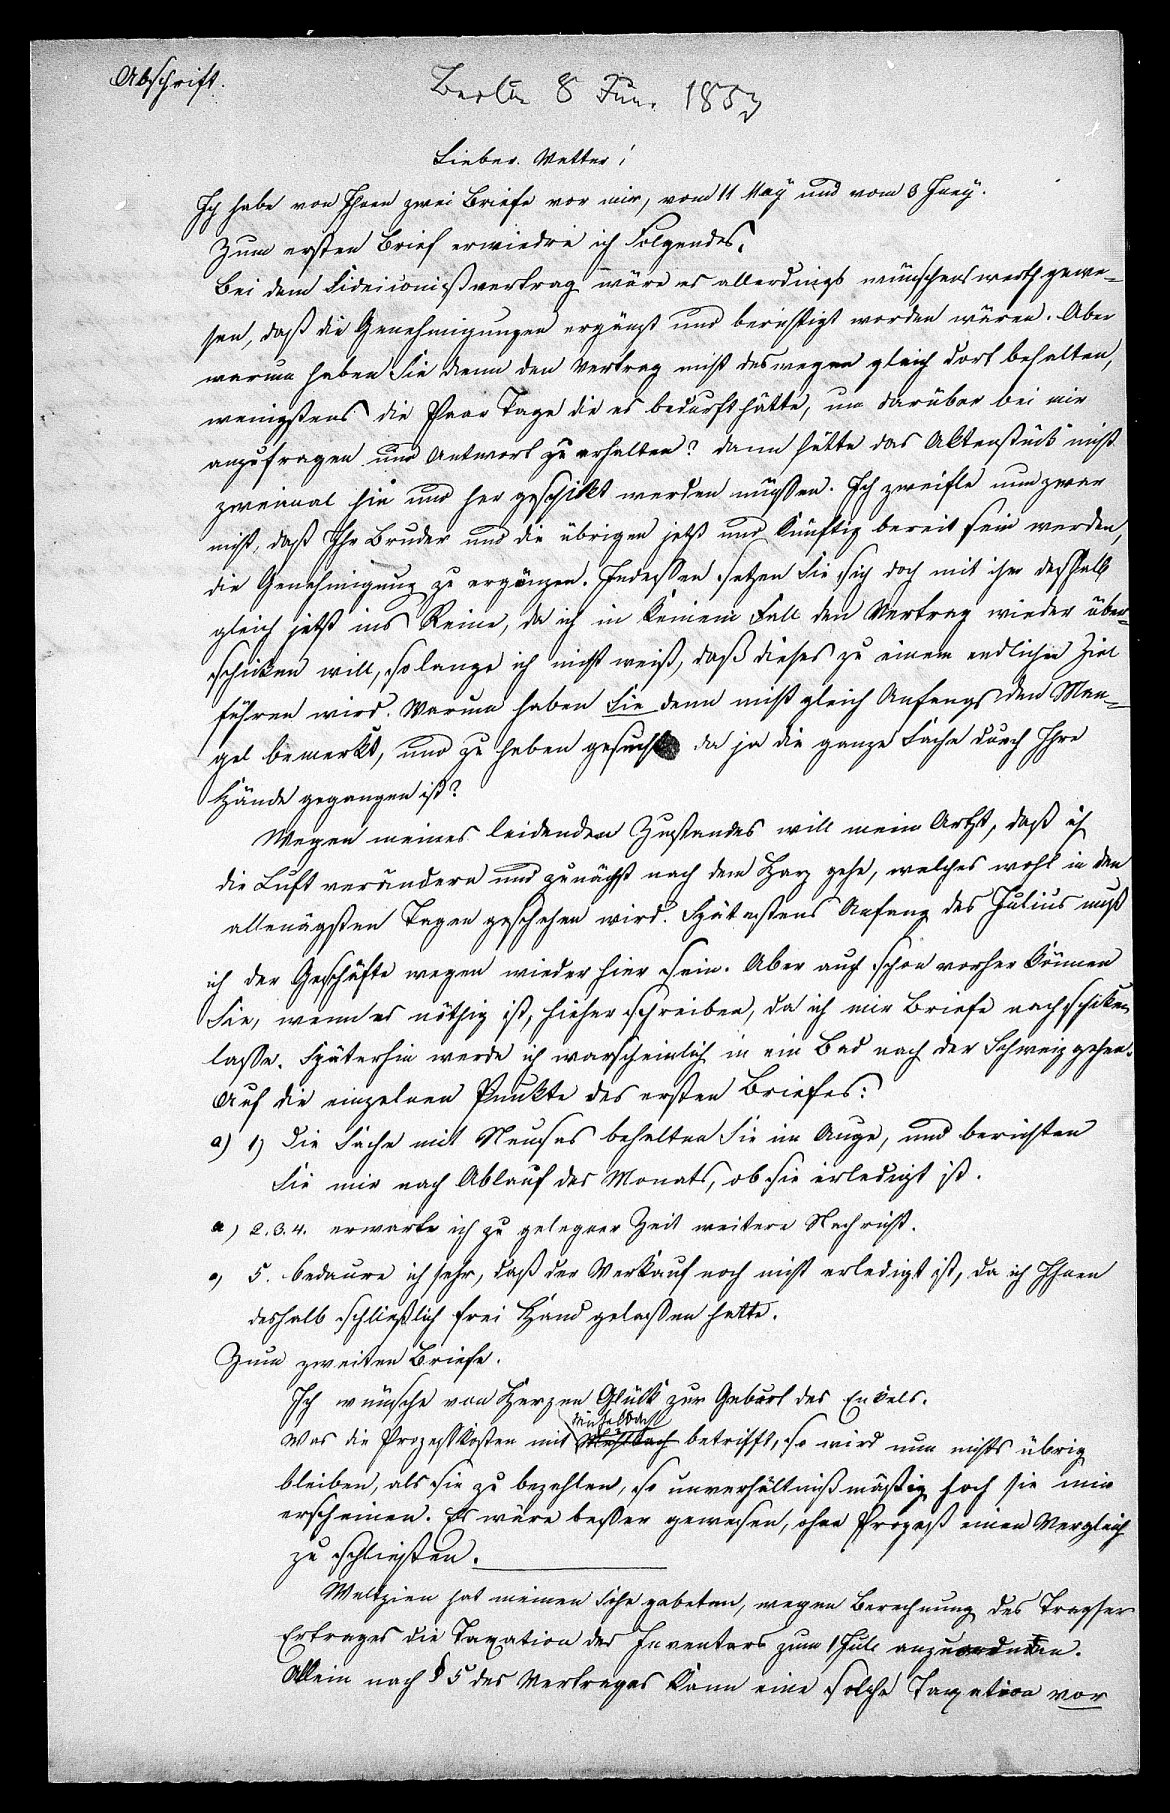 Abschrift.
Berlin 8 Jun. 1853
Lieber Vetter!
Ich habe von Ihnen zwei Briefe vor mir, vom 11 May und vom 3 Juny.
Zum ersten Brief erwiedre ich Folgendes.
Bei dem Fideicomißvertrag wäre es allerdings wünschenswerth gewe-
sen, daß die Genehmigungen ergänzt und berichtigt worden wären. Aber
warum haben Sie denn den Vertrag nicht deswegen gleich dort behalten,
wenigstens die Paar Tage die es bedurft hätte, um darüber bei mir
anzufragen und Antwort zu erhalten? dann hätte das Aktenstück nicht
zweimal hin und her geschikt werden müssen. Ich zweifle nun zwar
nicht, daß Ihr Bruder und die übrigen jetzt und künftig bereit sein werden,
die Genehmigung zu ergänzen. Indessen setzen Sie sich doch mit ihm deshalb
gleich jetzt ins Reine, da ich in keinem Fall den Vertrag wieder über-
schiken will, solange ich nicht weiß, daß dieses zu einem endlichen Ziel
führen wird. Warum haben Sie denn nicht gleich Anfangs den Man-
gel bemerkt, und zu heben gesucht da ja die ganze Sache durch Ihre
Hände gegangen ist?
Wegen meines leidenden Zustandes will mein Artzt, daß ich
die Luft verändern und zunächst nach dem Harz gehe, welches wohl in den
allernächsten Tagen geschehen wird. Spätestens Anfang des Julius muß
ich der Geschäfte wegen wieder hier sein. Aber auch schon vorher können
Sie, wenn es nöthig ist, hieher schreiben, da ich mir Briefe nachschiken
lasse. Späterhin werde ich warscheinlich in ein Bad nach der Schweiz gehen.
Auf die einzelnen Punkte des ersten Briefes:
a) 1) Die Sache mit Neuses behalten Sie im Auge, und berichten
Sie mir nach Ablauf des Monats, ob sie erledigt ist.
a) 2.3.4. erwarte ich zu gelegner Zeit weitere Nachricht.
a) 5. bedaure ich sehr, daß der Verkauf noch nicht erledigt ist, da ich Ihnen
deshalb schließlich frei Hand gelassen hatte.
Zum zweiten Briefe.
Ich wünsche von Herzen Glück zur Geburt des Enkels.
Michelbach
Was die Prozeßkosten mit Mühlbach betrifft, so wird nun nichts übrig
bleiben, als sie zu bezahlen, so unverhältnißmäßig hoch sie mir
erscheinen. Es wäre besser gewesen, ohne Prozeß einen Vergleich
zu schließen.
Weltzien hat meinen Sohn gebeten, wegen Berechnung des Trages
Ertrages die Taxation des Inventars zum 1 Juli anzuordnen.
Allein nach § 5 des Vertrages kann eine solche Taxation vor